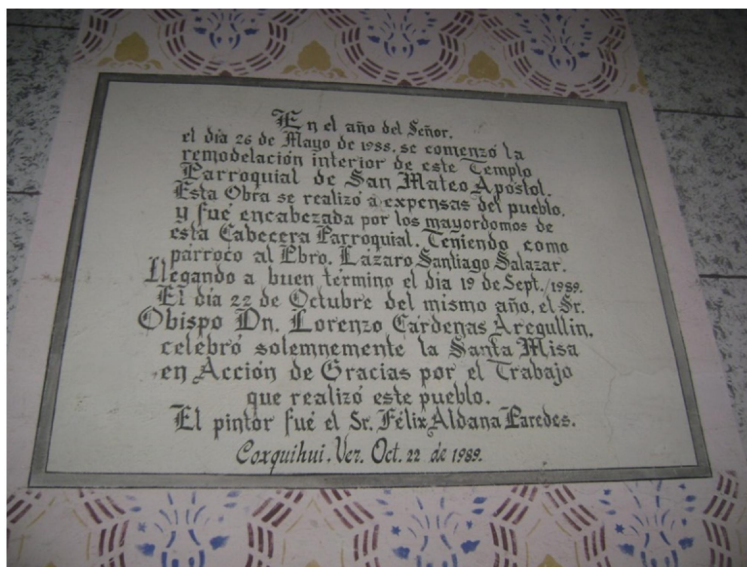 En el año del Señor.
el día 26 de Mayo de 1988. se comenzó la
remodelación interior de este Templo
Parroquial de San Mateo Apóstol.
Esta Obra se realizó a expensas del pueblo.
y fué encabezada por los mayordomos de
esta Cabecera Parroquial. Teniendo como
párroco al Pbro. Lázaro Santiago Salazar.
Llegando a buen término el día 19 de Sept./1989.
El día 22 de Octubre del mismo año, el Sr.
Obispo Dn. Lorenzo Cárdenas Aregullin.
celebró solemnemente la Santa Misa
en Acción de Gracias por el Trabajo
que realizó este pueblo.
El pintor fué el Sr. Félix Aldana Paredes.
Coxquihui. Ver. Oct. 22 de 1989.